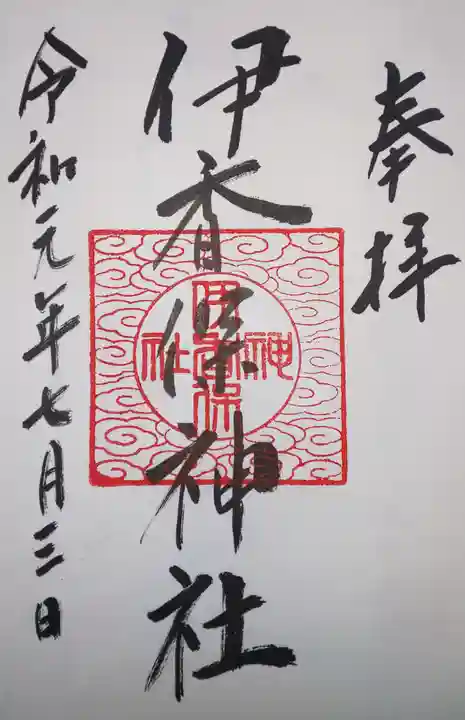 奉拝
伊香保神社
伊香保
神社
令和元年七月三日